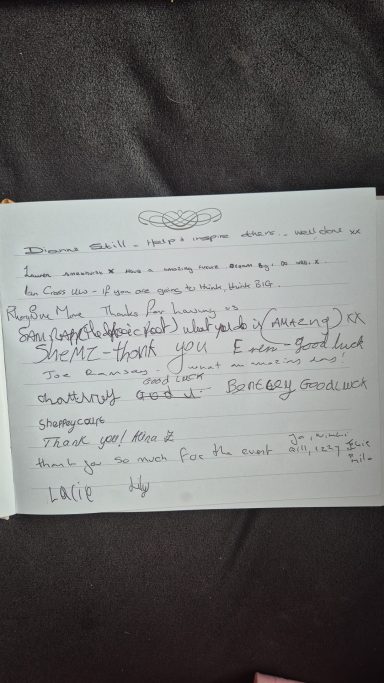 Dianne Still - Help & inspire others.. well done xx
Lauren x Have a amazing future. Dream Big, Do well. x
Ian Cross - if you are going to think, think BIG.
More Thanks for having us
SAM what you do is (AMAzeng) XX
SHeMZ - thank you Eren - good luck
Joe Ramsay. what an amazing day!
GOOD LUCK
Good Bentley Good luck
Sheppey court
Thank you! Alina Z
thank you so much for the event
Lacie Lily